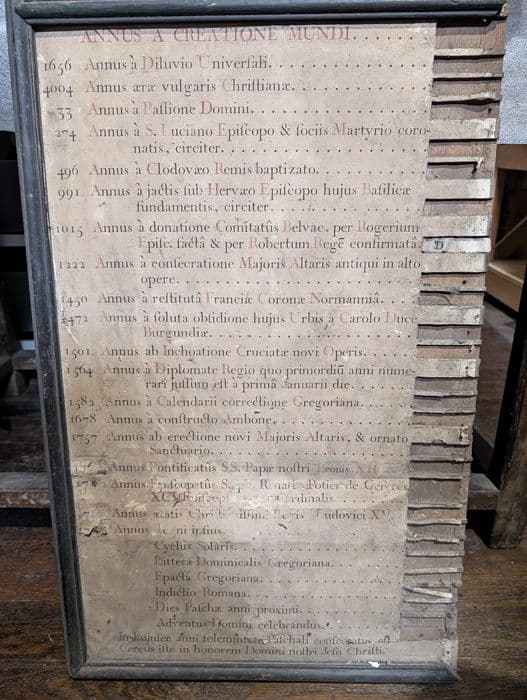 ANNUS A CREATIONE MUNDI.
1656 Annus à Diluvio Univerſali.
4004 Annus æræ vulgaris Chriſtianæ.
33 Annus à Paſſione Domini.
274 Annus à S. Luciano Epiſcopo & ſociis Martyrio coro-
natis, circiter.
496 Annus à Clodovæo Remis baptizato.
991 Annus à jactis ſub Hervæo Epiſcopo hujus Baſilicæ
fundamentis, circiter.
1015 Annus à donatione Comitatûs Belvac. per Rogerium
Epiſc. factâ & per Robertum Regē confirmatâ.
1222 Annus à conſecratione Majoris Altaris antiqui in alto
opere.
1450 Annus à reſtitutâ Franciæ Coronæ Normanniâ.
1472 Annus à ſoluta obſidione hujus Urbis à Carolo Duce
Burgundiæ.
1501 Annus ab Inchoatione Cruciatæ novi Operis.
1564 Annus à Diplomate Regio quo primordiū anni nume-
rari juſſum eſt à primâ Januarii die.
1582 Annus à Calendarii correctione Gregoriana.
1678 Annus à conſtructo Ambone.
1757 Annus ab erectione novi Majoris Altaris, & ornato
Sanctuario.
Annus Pontificatûs SS. Papæ noſtri Leonis XII
Annus Epiſcopatûs Potier de Geſvres
XCVI
Annus Ludovici XV
Annus
Cyclus Solaris.
Littera Dominicalis Gregoriana.
Epacta Gregoriana.
Indictio Romana.
Dies Paſchæ anni proximi.
Adventus Domini celebrandus.
In hujuſce anni ſolemnitate Paſchali conſecratus eſt
Cereus iſte in honorem Domini noſtri Jeſu Chriſti.